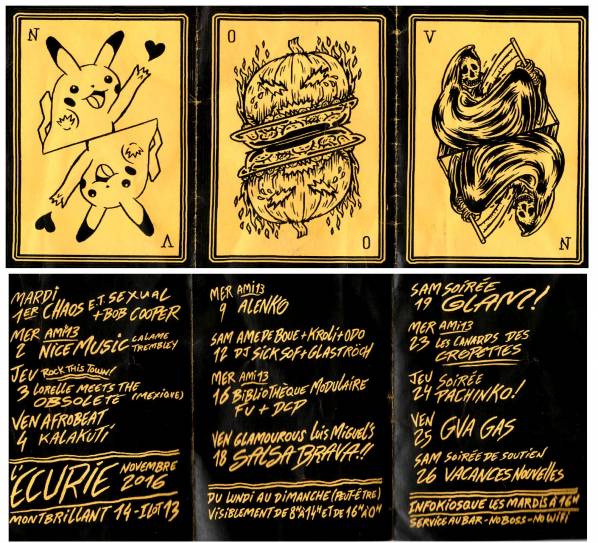 N
V
O
O
V
N
MARDI
1ER CHAOS E.T. SEXUAL
+ BOB COOPER
MER AMi13
2 NiCE MUSiC CALAME
TREMBLEY
JEU ROCK THIS TOWN!
3 LORELLE MEETS THE
OBSOLETE (MEXiQUE)
VEN AFROBEAT
4 KALAKUTi
L'ECURIE NOVEMBRE
2016
MONTBRiLLANT 14 - iLOT 13
MER AMi13
9 ALENKO
SAM AMEDEBOUE + KROLi + ODO
12 DJ SiCKSOF + GLASTRÖCH
MER AMi 13
16 BiBLiOTHÈQUE MODULAIRE
FU + DCP
VEN GLAMOUROUS LUiS MiGUEL'S
18 SALSA BRAVA!!
DU LUNDI AU DiMANCHE (PEUT-ÊTRE)
ViSiBLEMENT DE 8H À 14H ET DE 16H À 0H
SAM SOiRÉE
19 GLAM!
MER AMi13
23 LES CANARDS DES
CROPETTES
JEU SOiRÉE
24 PACHiNKO!
VEN
25 GVA GAS
SAM SOiRÉE DE SOUTiEN
26 VACANCES NOUVELLES
INFOKiOSQUE LES MARDiS À 16H
SERViCE AU BAR - NO BOSS - NO WiFi